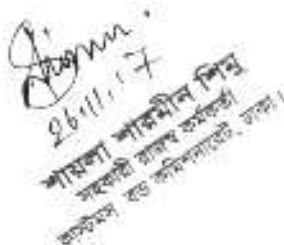 26.11.17
শায়লা শারমীন শিমু
সহকারী রাজস্ব কর্মকর্তা
কাস্টমস বন্ড কমিশনারেট, ঢাকা।